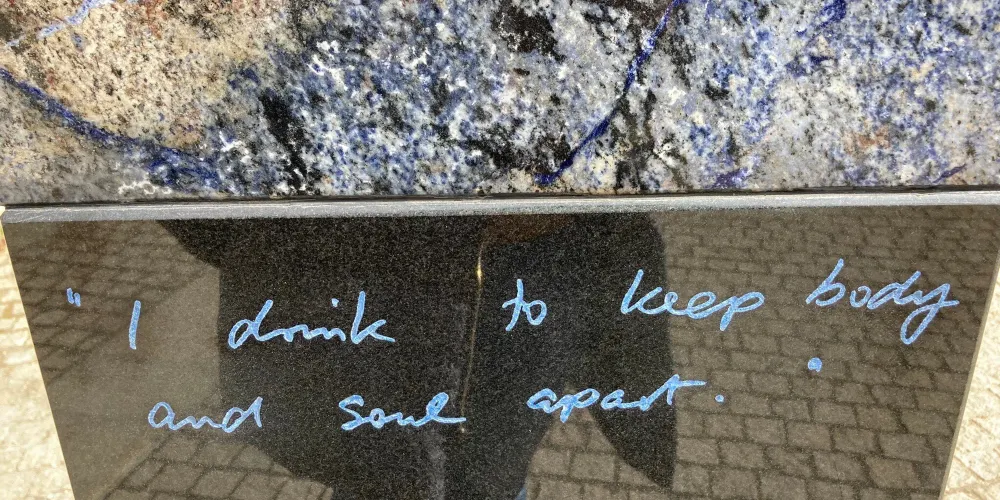 " I drink to keep body
and soul apart. "